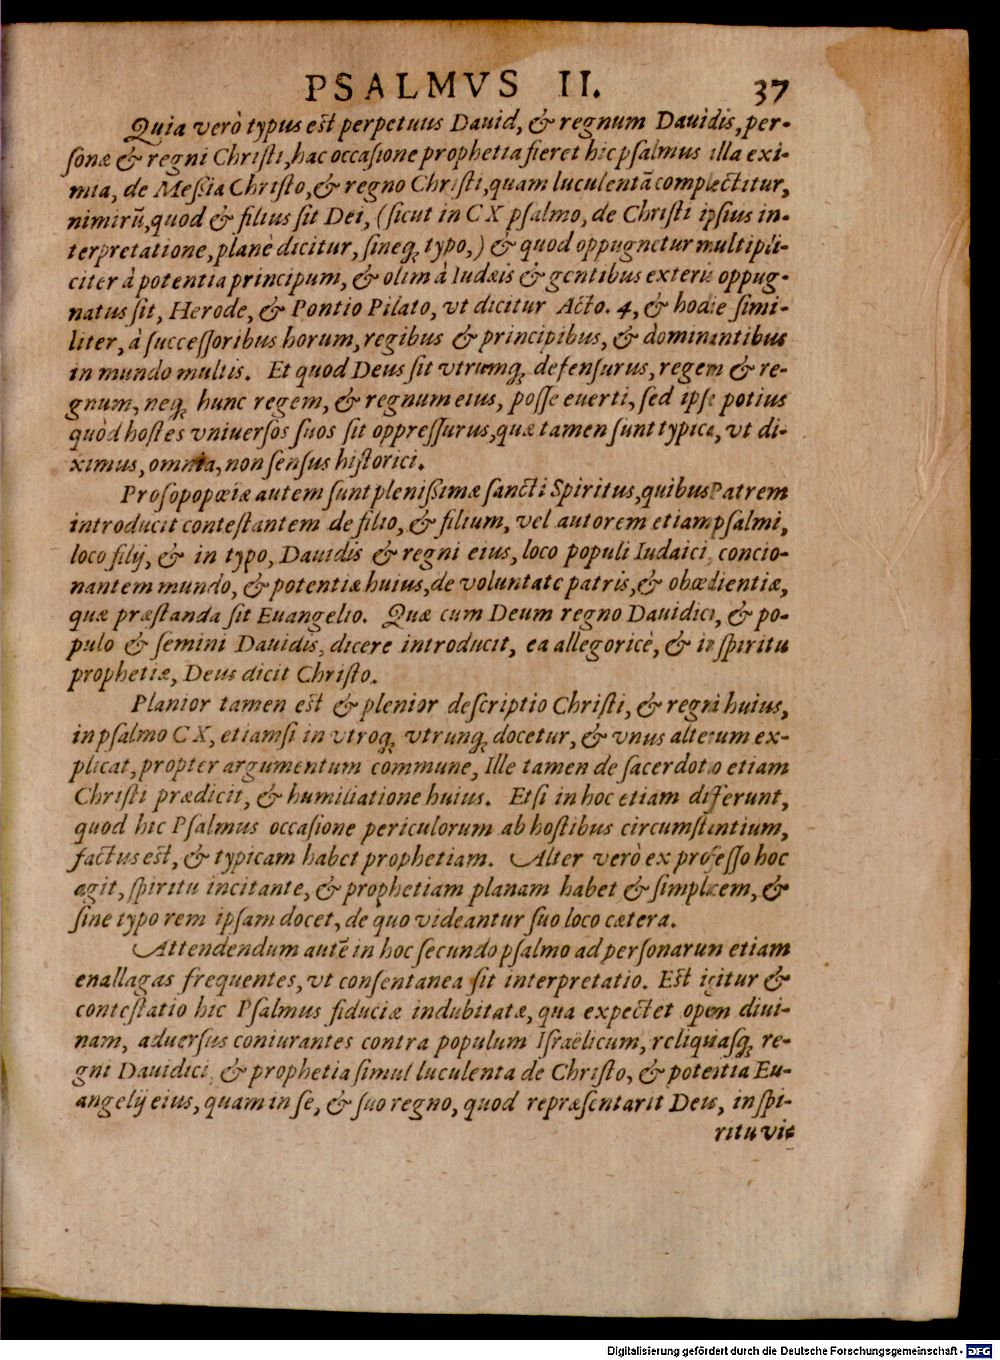 PSALMVS II. 37
Quia verò typus est perpetuus Dauid, & regnum Dauidis, per-
sonæ & regni Christi, hac occasione prophetia fieret hic psalmus illa exi-
mia, de Messia Christo, & regno Christi, quam luculentā complectitur,
nimirū, quod & filius sit Dei, (sicut in CX psalmo, de Christi ipsius in-
terpretatione, planè dicitur, sineq; typo,) & quod oppugnetur multipli-
citer à potentia principum, & olim à Iudæis & gentibus exteris oppug-
natus sit, Herode, & Pontio Pilato, vt dicitur Acto. 4, & hodie simi-
liter, à successoribus horum, regibus & principibus, & dominantibus
in mundo multis. Et quod Deus sit vtrumq; defensurus, regem & re-
gnum, neq; hunc regem, & regnum eius, posse euerti, sed ipse potius
quòd hostes vniuersos suos sit oppressurus, quæ tamen sunt typica, vt di-
ximus, omnia, non sensus historici.
Prosopopœiæ autem sunt plenissimæ sancti Spiritus, quibus Patrem
introducit contestantem de filio, & filium, vel autorem etiam psalmi,
loco filij, & in typo, Dauidis & regni eius, loco populi Iudaici, concio-
nantem mundo, & potentiæ huius, de voluntate patris, & obœdientiæ,
quæ præstanda sit Euangelio. Quæ cum Deum regno Dauidici, & po-
pulo & semini Dauidis, dicere introducit, ea allegoricè, & in spiritu
prophetiæ, Deus dicit Christo.
Planior tamen est & plenior descriptio Christi, & regni huius,
in psalmo CX, etiamsi in vtroq; vtrunq; docetur, & vnus alterum ex-
plicat, propter argumentum commune, Ille tamen de sacerdotio etiam
Christi prædicit, & humiliatione huius. Etsi in hoc etiam differunt,
quod hic Psalmus occasione periculorum ab hostibus circumstantium,
factus est, & typicam habet prophetiam. Alter verò ex professo hoc
agit, spiritu incitante, & prophetiam planam habet & simplicem, &
sine typo rem ipsam docet, de quo videantur suo loco cætera.
Attendendum autē in hoc secundo psalmo ad personarun etiam
enallagas frequentes, vt consentanea sit interpretatio. Est igitur &
contestatio hic Psalmus fiduciæ indubitatæ, qua expectet opem diui-
nam, aduersus coniurantes contra populum Israëlicum, reliquiasq; re-
gni Dauidici, & prophetia simul luculenta de Christo, & potentia Eu-
angelij eius, quam in se, & suo regno, quod repræsentarit Deus, in spi-
ritu vi-
Digitalisierung gefördert durch die Deutsche Forschungsgemeinschaft - DFG